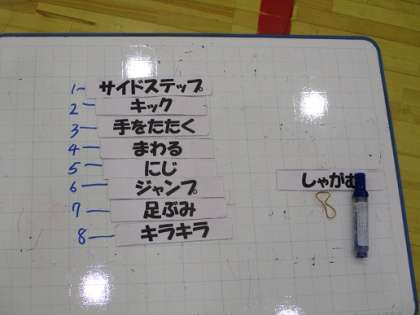 1 サイドステップ
2 キック
3 手をたたく
4 まわる
5 にじ
6 ジャンプ
7 足ぶみ
8 キラキラ
しゃがむ
8